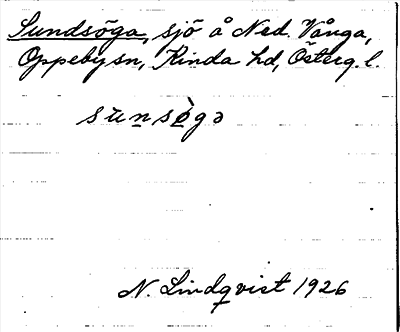 Sundsöga, sjö å Ned. Vånga,
Oppeby sn, Kinda hd, Österg. l.
sùnsø̀gə
N. Lindqvist 1926